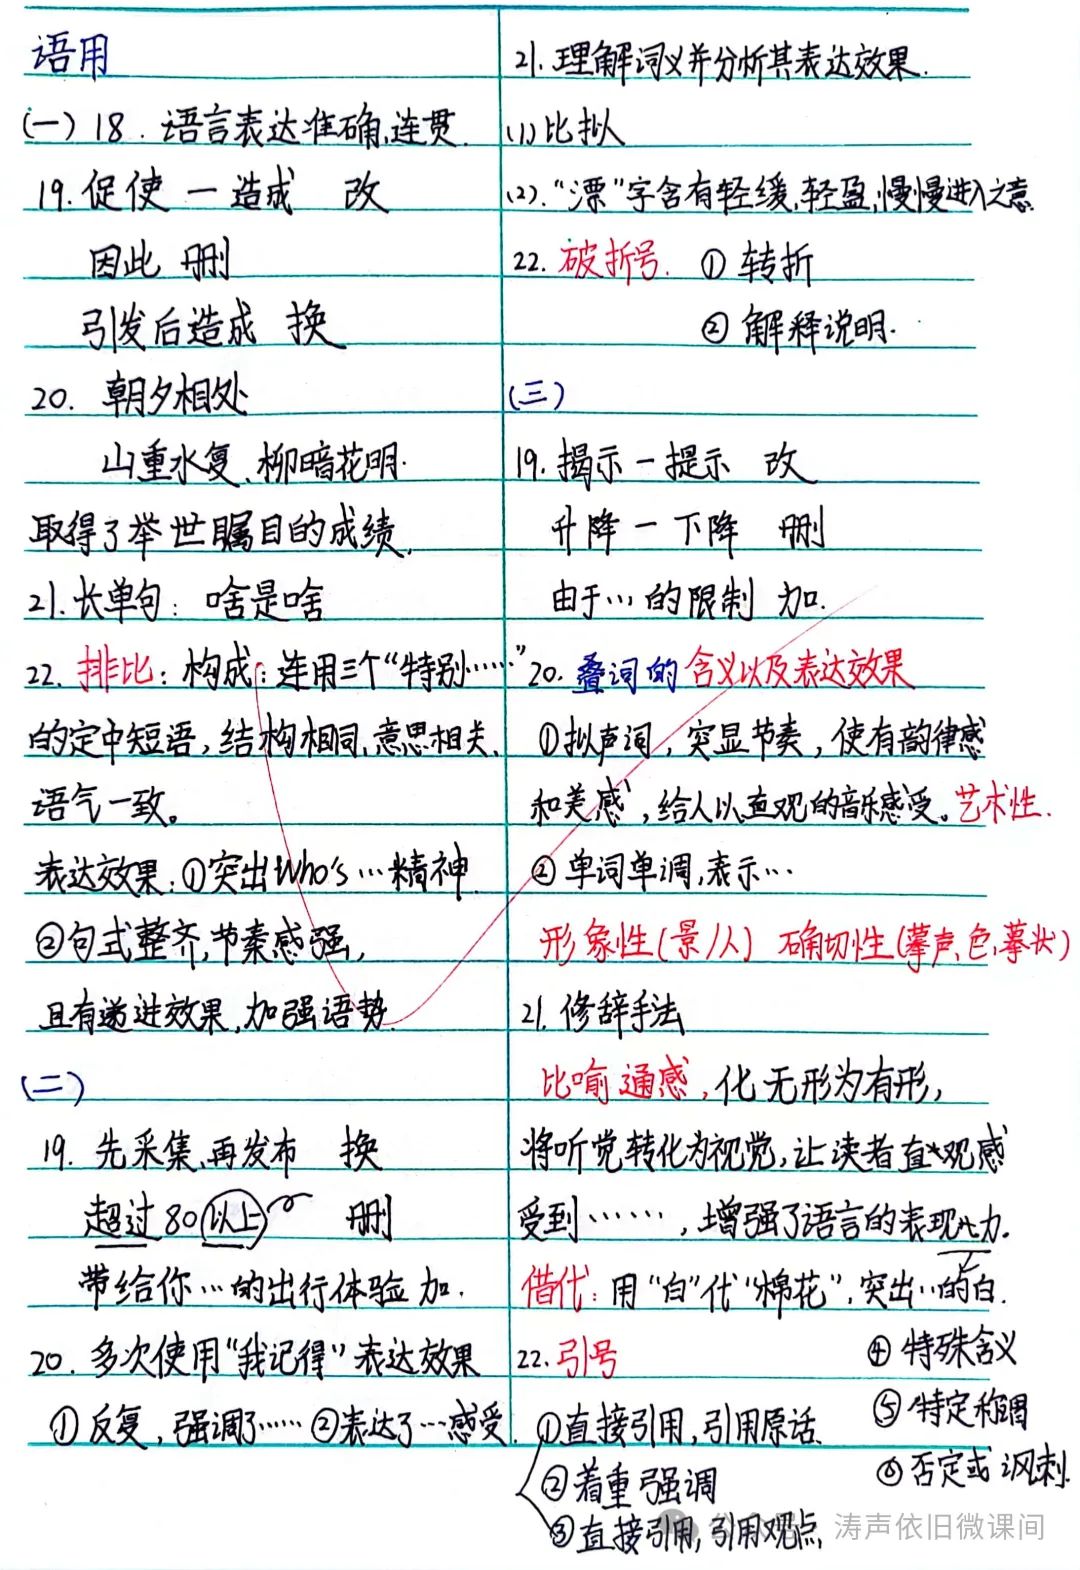 语用
(一) 18. 语言表达准确、连贯.
19. 促使 一 造成 改
因此 删
引发后造成 换
20. 朝夕相处
山重水复、柳暗花明.
取得了举世瞩目的成绩.
21. 长单句: 啥是啥
22. 排比: 构成: 连用三个“特别……”
的定中短语, 结构相同, 意思相关.
语气一致。
表达效果: ①突出Who's…精神.
②句式整齐, 节奏感强,
且有递进效果, 加强语势.
(二)
19. 先采集、再发布 换
超过80以上 删
带给你…的出行体验 加.
20. 多次使用“我记得”表达效果
①反复, 强调了…… ②表达了…感受.
21. 理解词义并分析其表达效果.
(1) 比拟
(2). “漂”字含有轻缓、轻盈, 慢慢进入之意.
22. 破折号. ① 转折
② 解释说明.
(三)
19. 揭示 一 提示 改
升降 一 下降 删
由于…的限制 加.
20. 叠词的含义以及表达效果
①拟声词, 突显节奏, 使有韵律感
和美感, 给人以直观的音乐感受。艺术性.
② 单词单调, 表示…
形象性(景/人) 确切性(摹声, 色, 摹状)
21. 修辞手法
比喻 通感, 化无形为有形,
将听觉转化为视觉, 让读者直观感
受到……, 增强了语言的表现力.
借代: 用“白”代“棉花”, 突出…的白.
22. 引号
①直接引用, 引用原话.
②着重强调
③直接引用, 引用观点.
④ 特殊含义
⑤ 特定称谓
⑥ 否定或讽刺.
公众号 · 涛声依旧微课间